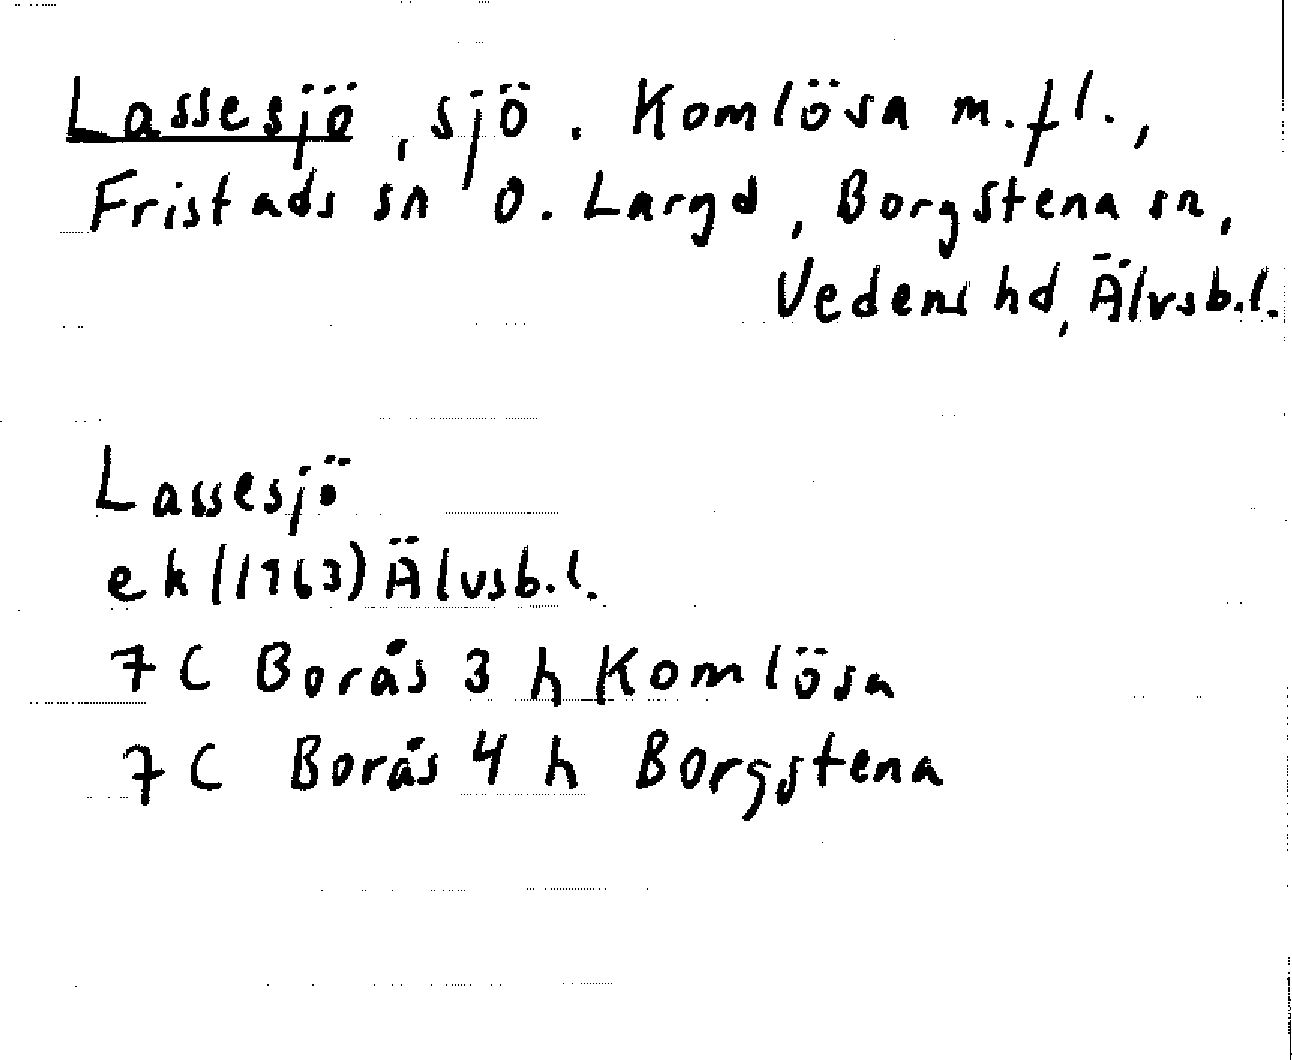 Lassesjö, sjö. Komlösa m.fl.,
Fristads sn o. Largd, Borgstena sn,
Vedens hd, Älvsb.l.
Lassesjö
ek (1963) Älvsb.l.
7 C Borås 3 h Komlösa
7 C Borås 4 h Borgstena